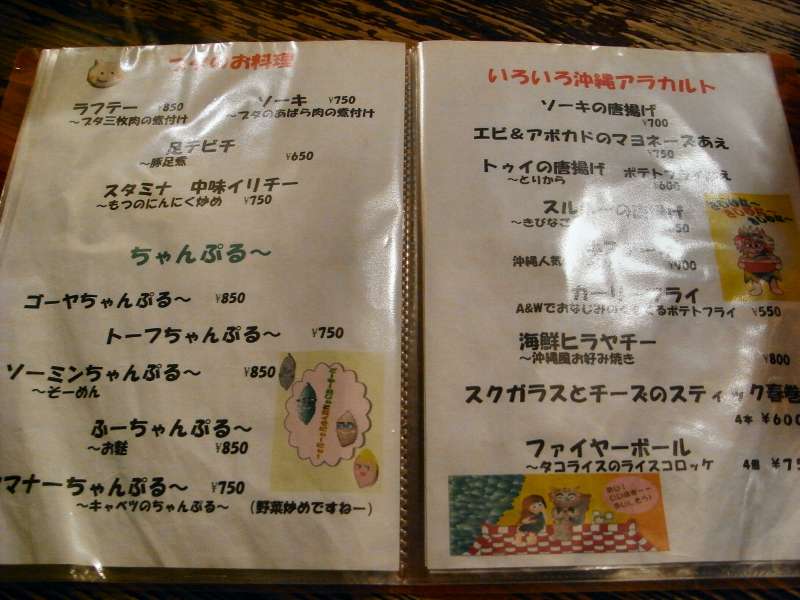 のお料理
ラフテー ¥850
～ブタ三枚肉の煮付け
ソーキ ¥750
～ブタのあばら肉の煮付け
足テビチ
～豚足煮 ¥650
スタミナ 中味イリチー
～もつのにんにく炒め ¥750
ちゃんぷる～
ゴーヤちゃんぷる～ ¥850
トーフちゃんぷる～ ¥750
ソーミンちゃんぷる～ ¥850
～そーめん
ふーちゃんぷる～
～お麩 ¥850
マナーちゃんぷる～ ¥750
～キャベツのちゃんぷる～ (野菜炒めですねー)
いろいろ沖縄アラカルト
ソーキの唐揚げ
¥700
エビ＆アボカドのマヨネーズあえ
¥750
トゥイの唐揚げ ポテトフライ
～とりから ¥600
の唐揚げ
～きびなご
沖縄人気
カーリー フライ
A&Wでおなじみの ポテトフライ ¥550
海鮮ヒラヤチー
～沖縄風お好み焼き ¥800
スクガラスとチーズのスティック春巻
4本 ¥600
ファイヤーボール
～タコライスのライスコロッケ 4個